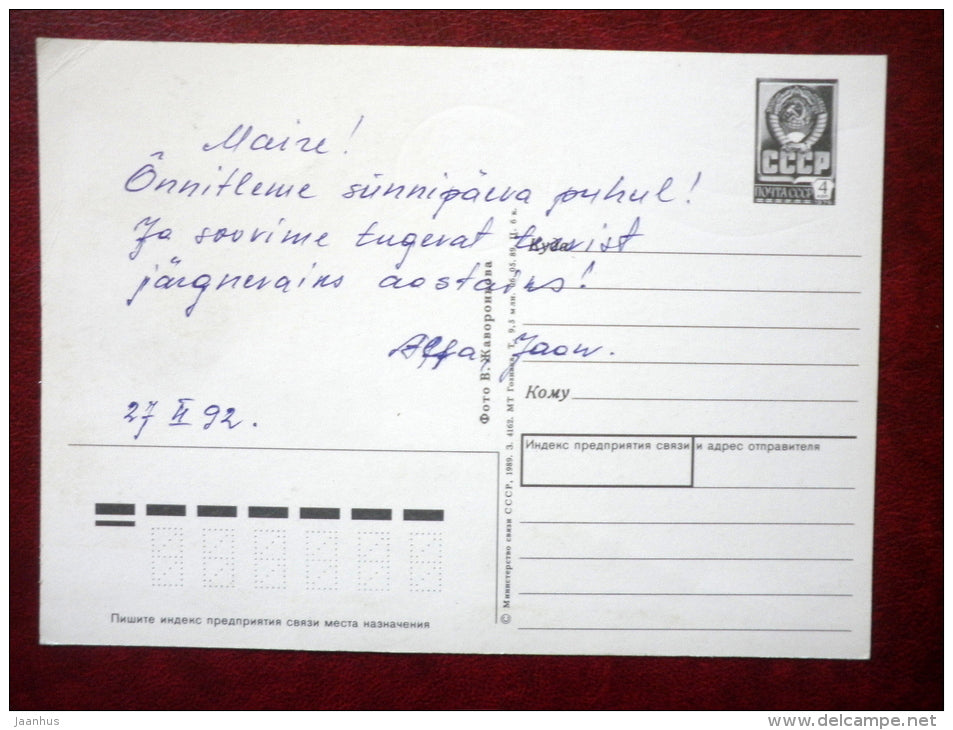 Maire!
Õnnitleme sünnipäeva puhul!
Ja soovime tugevat tervist
järgnevaiks aastaiks!
Jaan.
27 II 92.
СССР
ПОЧТА СССР 4
Куда
Кому
Индекс предприятия связи и адрес отправителя
Фото В. Жаворонкова
© Министерство связи СССР, 1989. З. 4162. МТ Гознака. Т. 9,5 млн. 06.05.89. Ц. 6 к.
Пишите индекс предприятия связи места назначения
jaanhus
www.delcampe.net